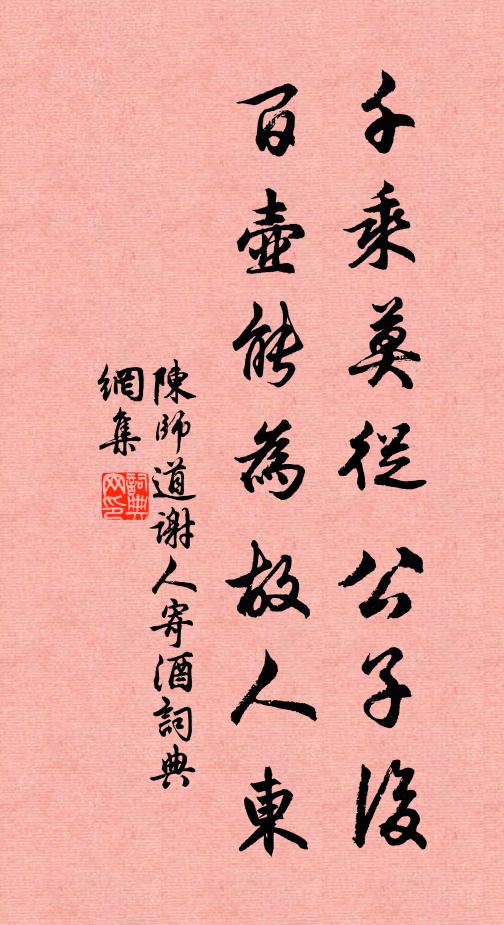 千乘莫從公子後
百壺能為故人東
陳師道謝人寄酒詞典
網集
詞典網印